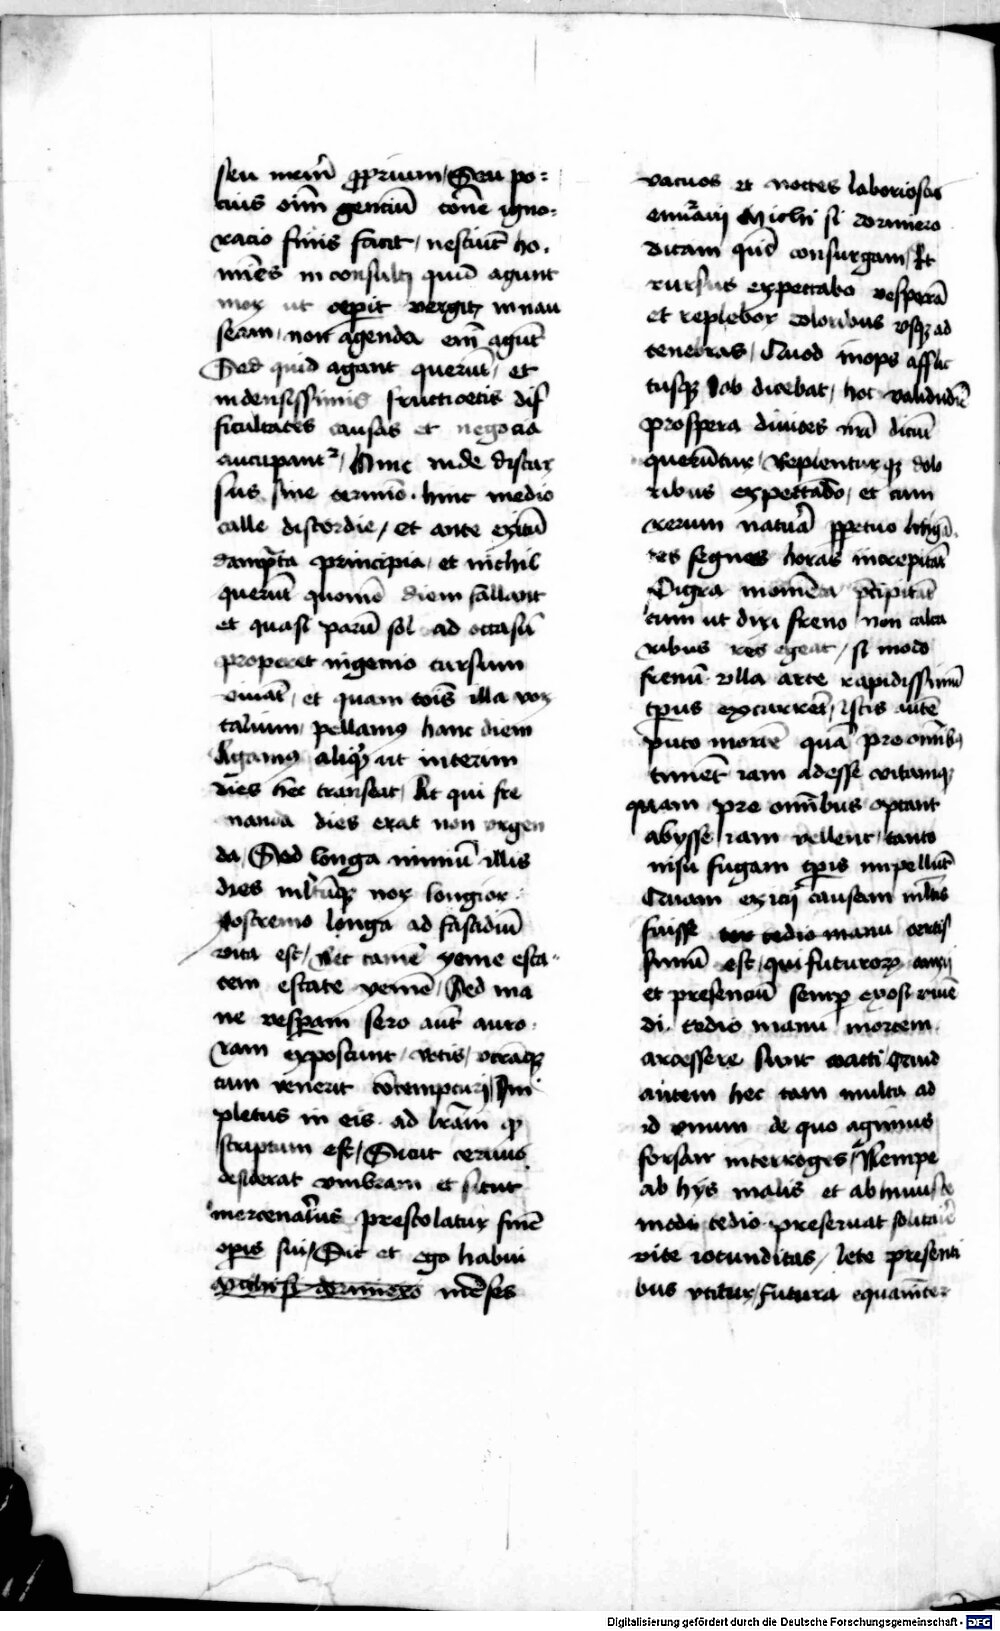 seu meū proprium / Seu po=
cius oīm genciū cōne igno=
racio finis facit / nesciūt ho.
mīes inconsulti quid agunt
mox ut ceperit vergit in nau
seam / non agenda em̄ agūt
Sed quid agant querūt / et
in densissimis fructicetis dif
ficultates causas et negocia
aucupantr / Hinc inde discur
sus sine termīo . hinc medio
calle discordie / et ante exitū
dampnata principia / et nichil
querūt quomō diem fallant
et quasi parū sol ad occasū
properet ingenio cursum
iuuāt / et quam tōis illa vox
talium / pellamus hanc diem
Agamus aliquid ut interim
dies hec transeat / At qui fre
nanda dies erat non vrgen
da / Sed longa nimiū illis
dies multūque nox longior .
postremo longa ad fastidiū
vita est / Nec tamē yeme esta=
tem estate yemē / Sed ma
ne vesperam sero aūt auro .
ram exposcunt / votis / vtrāque
cum venerit cōtempturi / Im
pletus in eis . ad lrām quod
scriptum est / Sicut ceruus
desiderat vmbram et sicut
mercenarius prestolatur finē
operis sui / Sic et ego habui
Michi si dormiero mēses
vacuos et noctes laboriosas
enumeraui Michi si dormiero
dicam quid consurgam / Et
rursus expectabo vesperā
et replebor doloribus vsque ad
tenebras / Quod inops afflic
tusque Iob dicebat / hoc validi diē
prospera diuites nrī diciū
querūtur / Replenturque dolo
ribus expectādo / et cum
rerum naturā perpetuo litigā.
tes segnes horas increpitāt
Pigra momēta precipitāt
cum ut dixi freno non calca
ribus res egeat / si modo
frenū vlla arte rapidissimū
tpus excurrēt / istis autē
puto mortē quā pre omībus
timēt iam adesse vitamque
quam pre omībus optant
abysse iam vellent / tanto
nisu fugam tpris impellūt
Quam exicii causam multis
fuisse tedio manu certis
simū est / qui futurorum anxii
et presenciū semper exosi viuē
di . tedio manu mortem
arcessere sunt coacti / Quid
autem hec tam multa ad
id vnum de quo agimus
forsan interroges / Nempe
ab hys malis et ab huiusce
modi tedio preseruat solitarie
vite iocunditas / lete presenti
bus vtitur / futura equanīter